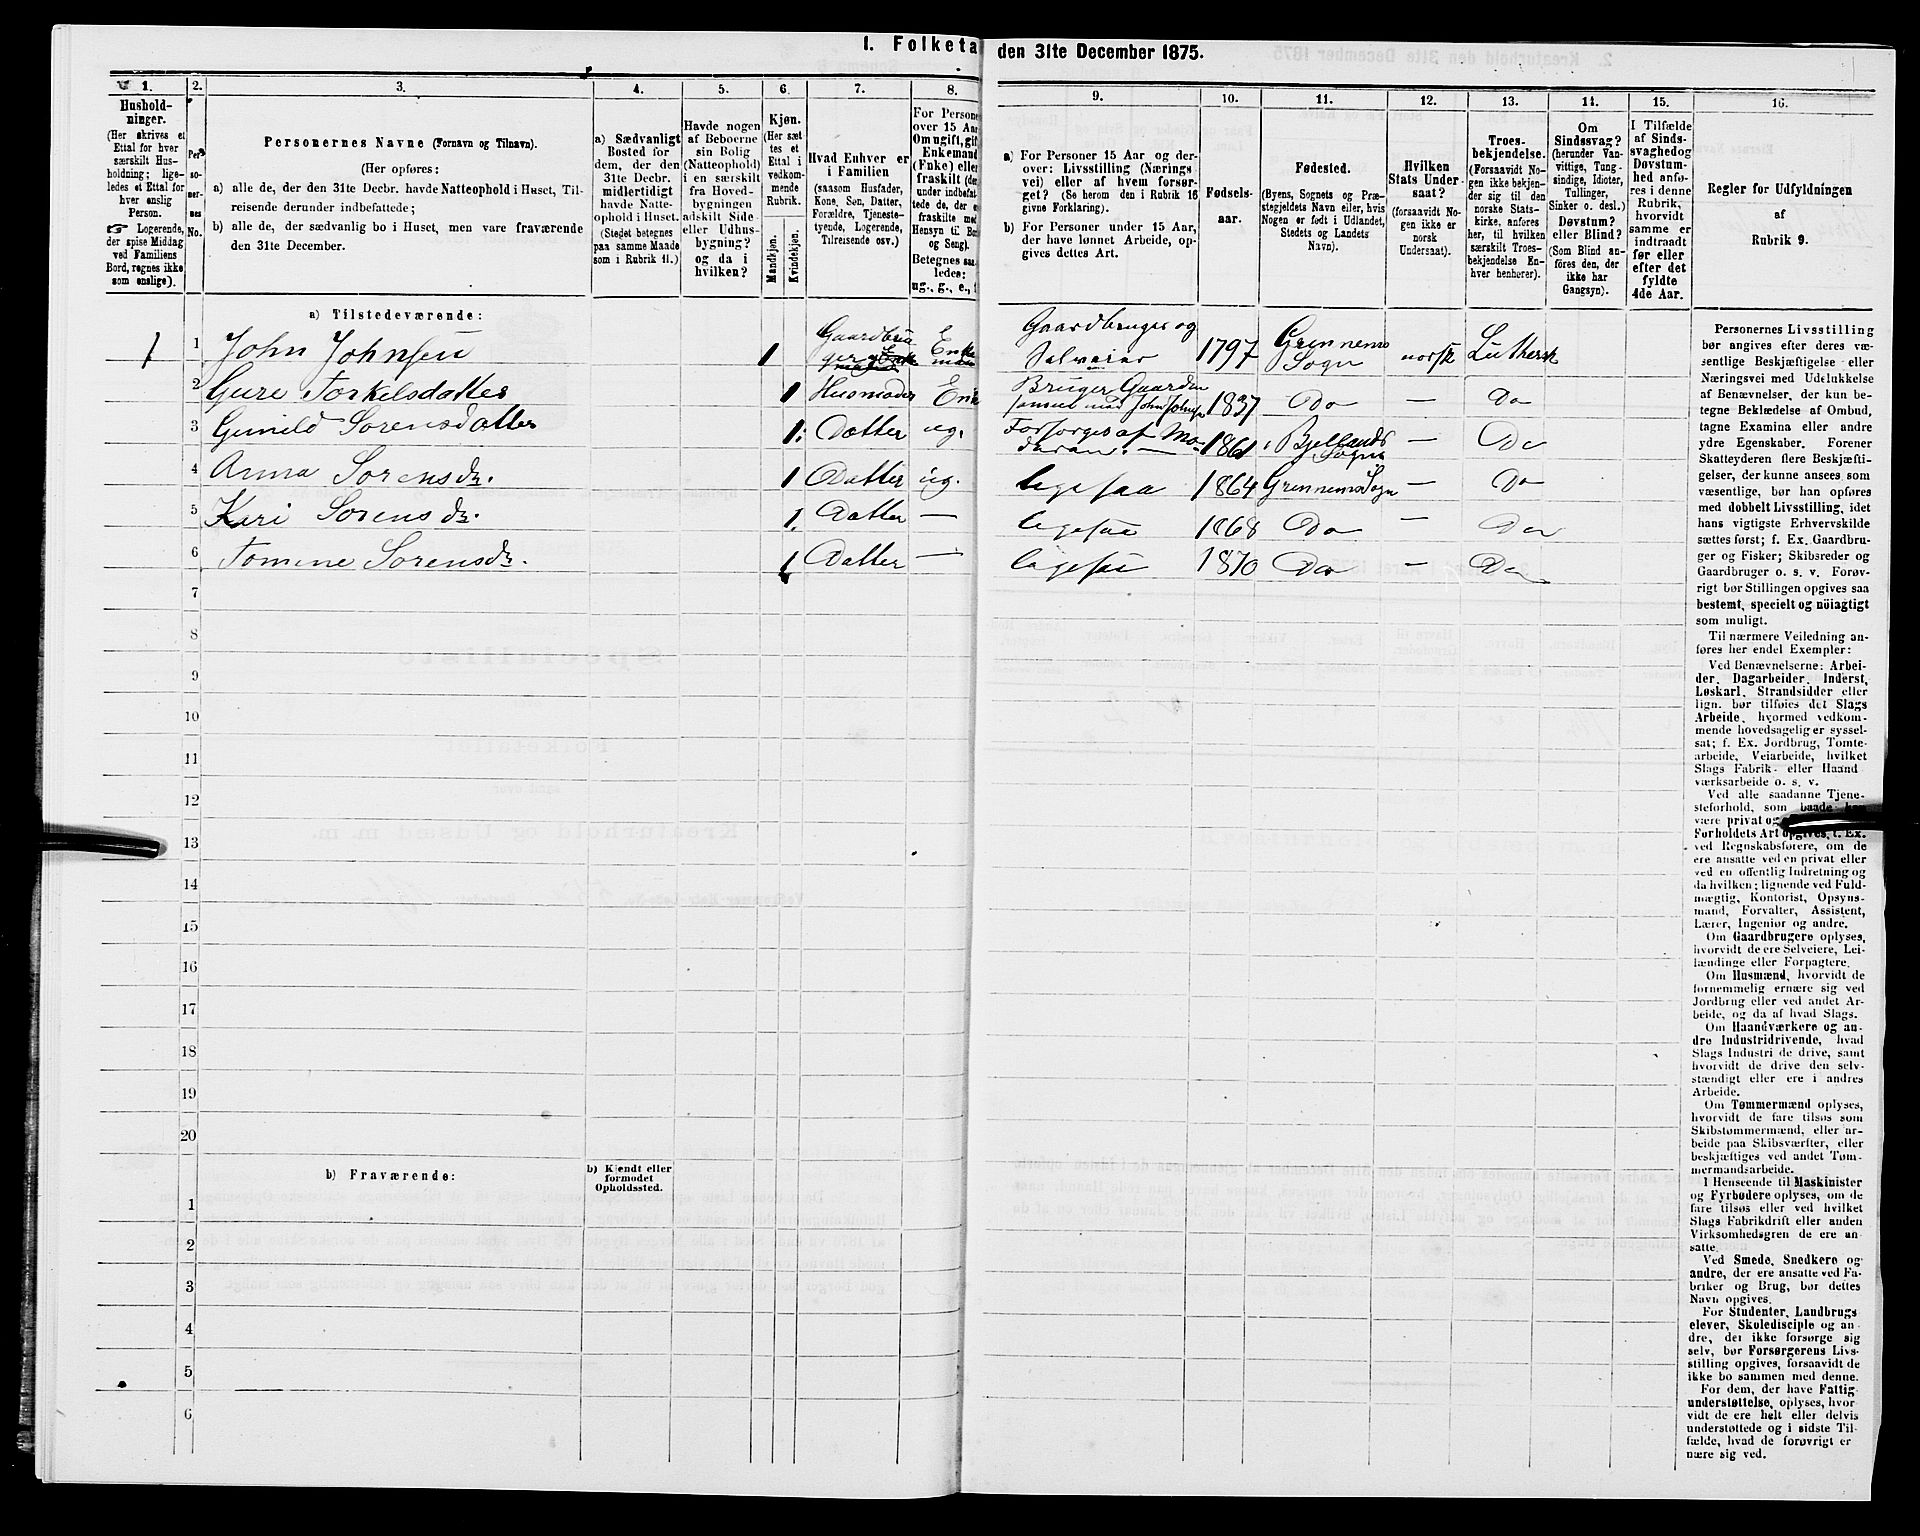 I. Folketa den 31te December 1875.
1. 2. 3. 4. 5. 6. 7. 8. 9. 10. 11. 12. 13. 14. 15. 16.
Hushold-
ninger.
(Her skrives et
Ettal for hver
særskilt Hus-
holdning; lige-
ledes et Ettal for
hver enslig
Person.
☞ Logerende,
der spise Middag
ved Familiens
Bord, regnes ikke
som enslige).
Per-
so-
ner-
nes
No.
Personernes Navne (Fornavn og Tilnavn).
(Her opføres:
a) alle de, der den 31te Decbr. havde Natteophold i Huset, Til-
reisende derunder indbefattede;
b) alle de, der sædvanlig bo i Huset, men vare fraværende
den 31te December.
a) Sædvanligt
Bosted for
dem, der den
31te Decbr.
midlertidigt
havde Natte-
ophold i Huset.
(Stedet betegnes
paa samme Maade
som i Rubrik 11.)
Havde nogen
af Beboerne
sin Bolig
(Natteophold)
i en særskilt
fra Hoved-
bygningen
adskilt Side-
eller Udhus-
bygning?
og da i
hvilken?
Kjøn.
(Her sæt-
tes et
Ettal i
vedkom-
mende
Rubrik.
Mandkjøn.
Kvindekjøn.
Hvad Enhver er
i Familien
(saasom Husfader,
Kone, Søn, Datter,
Forældre, Tjeneste-
tyende, Logerende,
Tilreisende osv.)
For Persone
over 15 Aar
Om ugift, gif
Enkemand
(Enke) eller
fraskilt (de
under indbefat
tede de, der e
fraskilte med
Hensyn til Bo
og Seng).
Betegnes saa
ledes:
ug., g., e.,
a) For Personer 15 Aar og der-
over: Livsstilling (Nærings
vei) eller af hvem forsør-
get? (Se herom den i Rubrik 16
givne Forklaring).
b) For Personer under 15 Aar,
der have lønnet Arbeide, op-
gives dettes Art.
Fødsels-
aar.
Fødested.
(Byens, Sognets og Præ-
stegjeldets Navn eller, hvis
Nogen er født i Udlandet,
Stedets og Landets
Navn).
Hvilken
Stats Under-
saat?
(forsaavidt No-
gen ikke er
norsk
Undersaat).
Troes-
bekjendelse.
(Forsaavidt No-
gen ikke bekjen-
der sig til den
norske Stats-
kirke, anføres
her, til hvilken
særskilt Troes-
bekjendelse En-
hver henhører).
Om
Sindssvag?
(herunder Van-
vittige, Tung-
sindige, Idioter,
Tullinger,
Sinker o. desl.)
Døvstum?
eller Blind?
(Som Blind an-
føres den, der
ikke har
Gangsyn).
I Tilfælde
af Sinds-
svaghedog
Døvstum-
hed anfø-
res i denne
Rubrik,
hvorvidt
samme er
indtraadt
før eller
efter det
fyldte
4de Aar.
Regler for Udfyldningen
af
Rubrik 9.
a) Tilstedeværende:
1 1 John Johnsen 1 Gaardbru Enke Gaardbruger og 1797 Grennems norsk Luthersk
ger man Selveier Sogn
2 Gure Torkelsdatter 1 Husmoder Enk Bruger Gaarden 1837 Do — Do
samen med John Johnsen
3 Gunild Sorensdatter 1. Datter ug. Forsorges af Mo- 1861 Bjellands — Do
deren. — Sogn
4 Anna Sorensdr. 1 Datter ug. ligesaa 1864 Grennems Sogn — Do
5 Kari Sorensdr. 1. Datter — ligesaa 1868 Do — Do
6 Tomine Sorensdr. 1 Datter — ligesaa 1870 Do — Do
7
8
9
10
11
12
13
14
15
16
17
18
19
20
b) Fraværende:
b) Kjendt eller
formodet
Opholdssted.
1
2
3
4
5
6
Personernes Livsstilling
bør angives efter deres væ-
sentlige Beskjæftigelse eller
Næringsvei med Udelukkelse
af Benævnelser, der kun be-
tegne Beklædelse af Ombud,
tagne Examina eller andre
ydre Egenskaber. Forener
Skatteyderen flere Beskjæfti-
gelser, der kunne ansees som
væsentlige, bør han opføres
med dobbelt Livsstilling, idet
hans vigtigste Erhvervskilde
sættes først; f. Ex. Gaardbru-
ger og Fisker; Skibsreder og
Gaardbruger o. s. v. Forøv-
rigt bør Stillingen opgives saa
bestemt, specielt og nöiagtigt
som muligt.
Til nærmere Veiledning an-
føres her endel Exempler:
Ved Benævnelserne: Arbei-
der, Dagarbeider, Inderst,
Løskarl, Strandsidder eller
lign. bør tilføies det Slags
Arbeide, hvormed vedkom-
mende hovedsagelig er syssel-
sat; f. Ex. Jordbrug, Tomte-
arbeide, Veiarbeide, hvilket
Slags Fabrik- eller Haand
værksarbeide o. s. v.
Ved alle saadanne Tjene-
steforhold, som baade kan
være privat og
Forholdets Art opgives, f. Ex.
ved Regnskabsførere, om de
ere ansatte ved en privat eller
ved en offentlig Indretning og
da hvilken; lignende ved Fuld-
mægtig, Kontorist, Opsyns-
mand, Forvalter, Assistent,
Lærer, Ingeniør og andre.
Om Gaardbrugere oplyses,
hvorvidt de ere Selveiere, Lei-
lændinge eller Forpagtere.
Om Husmænd, hvorvidt de
fornemmelig ernære sig ved
Jordbrug eller ved andet Ar-
beide, og da af hvad Slags.
Om Haandværkere og an-
dre Industridrivende, hvad
Slags Industri de drive, samt
hvorvidt de drive den selv-
stændigt eller ere i andres
Arbeide.
Om Tømmermænd oplyses,
hvorvidt de fare tilsøs som
Skibstømmermænd, eller ar-
beide paa Skibsværfter, eller
beskjæftiges ved andet Tøm-
mermandsarbeide.
I Henseende til Maskinister
og Fyrbødere oplyses, om de
fare tilsøs eller ved hvilket
Slags Fabrikdrift eller anden
Virksomhedsgren de ere an-
satte.
Ved Smede, Snedkere og
andre, der ere ansatte ved Fa-
briker og Brug, bør dettes
Navn opgives.
For Studenter, Landbrugs
elever, Skoledisciple og an-
dre, der ikke forsørge sig
selv, bør Forsørgerens Livs-
stilling opgives, forsaavidt de
ikke bo sammen med denne.
For dem, der have Fattig-
understøttelse, oplyses, hvor-
vidt de ere helt eller delvis
understøttede og i sidste Til-
fælde, hvad de forøvrigt er
nære sig ved.